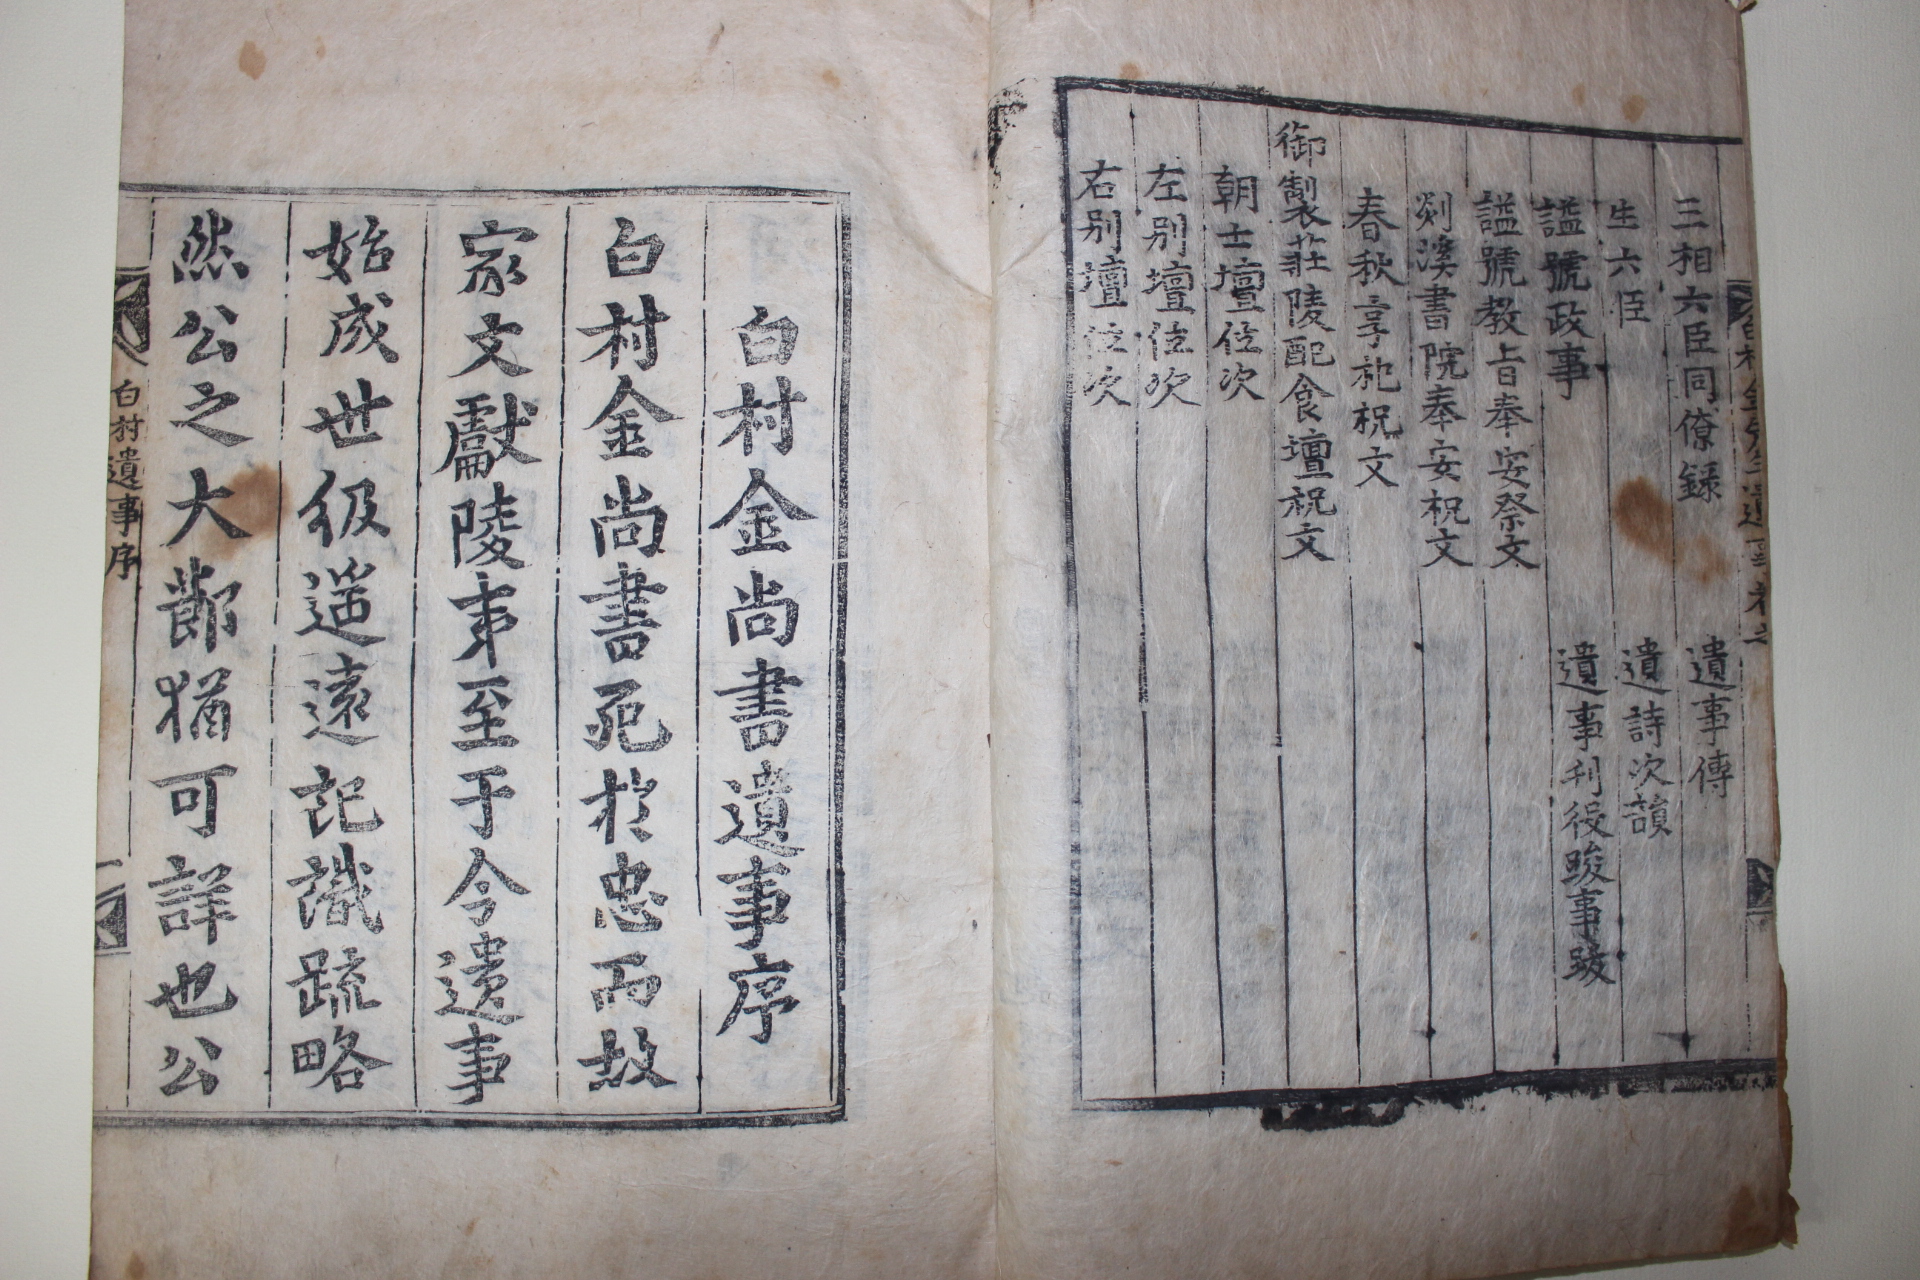 三相六臣同僚録　遺事傳
生六臣　遺詩次韻
謚號政事　遺事刋役跋事跋
謚號教旨奉安祭文
剡溪書院奉安祝文
春秋享祀祝文
御製莊陵配食壇祝文
朝士壇位次
左别壇位次
右别壇位次
白村金尚書遺事序
白村金尚書死於忠而故
家文獻陵夷至于今遺事
始成世級遥遠記識疏略
然公之大節猶可詳也公
白村遺事序